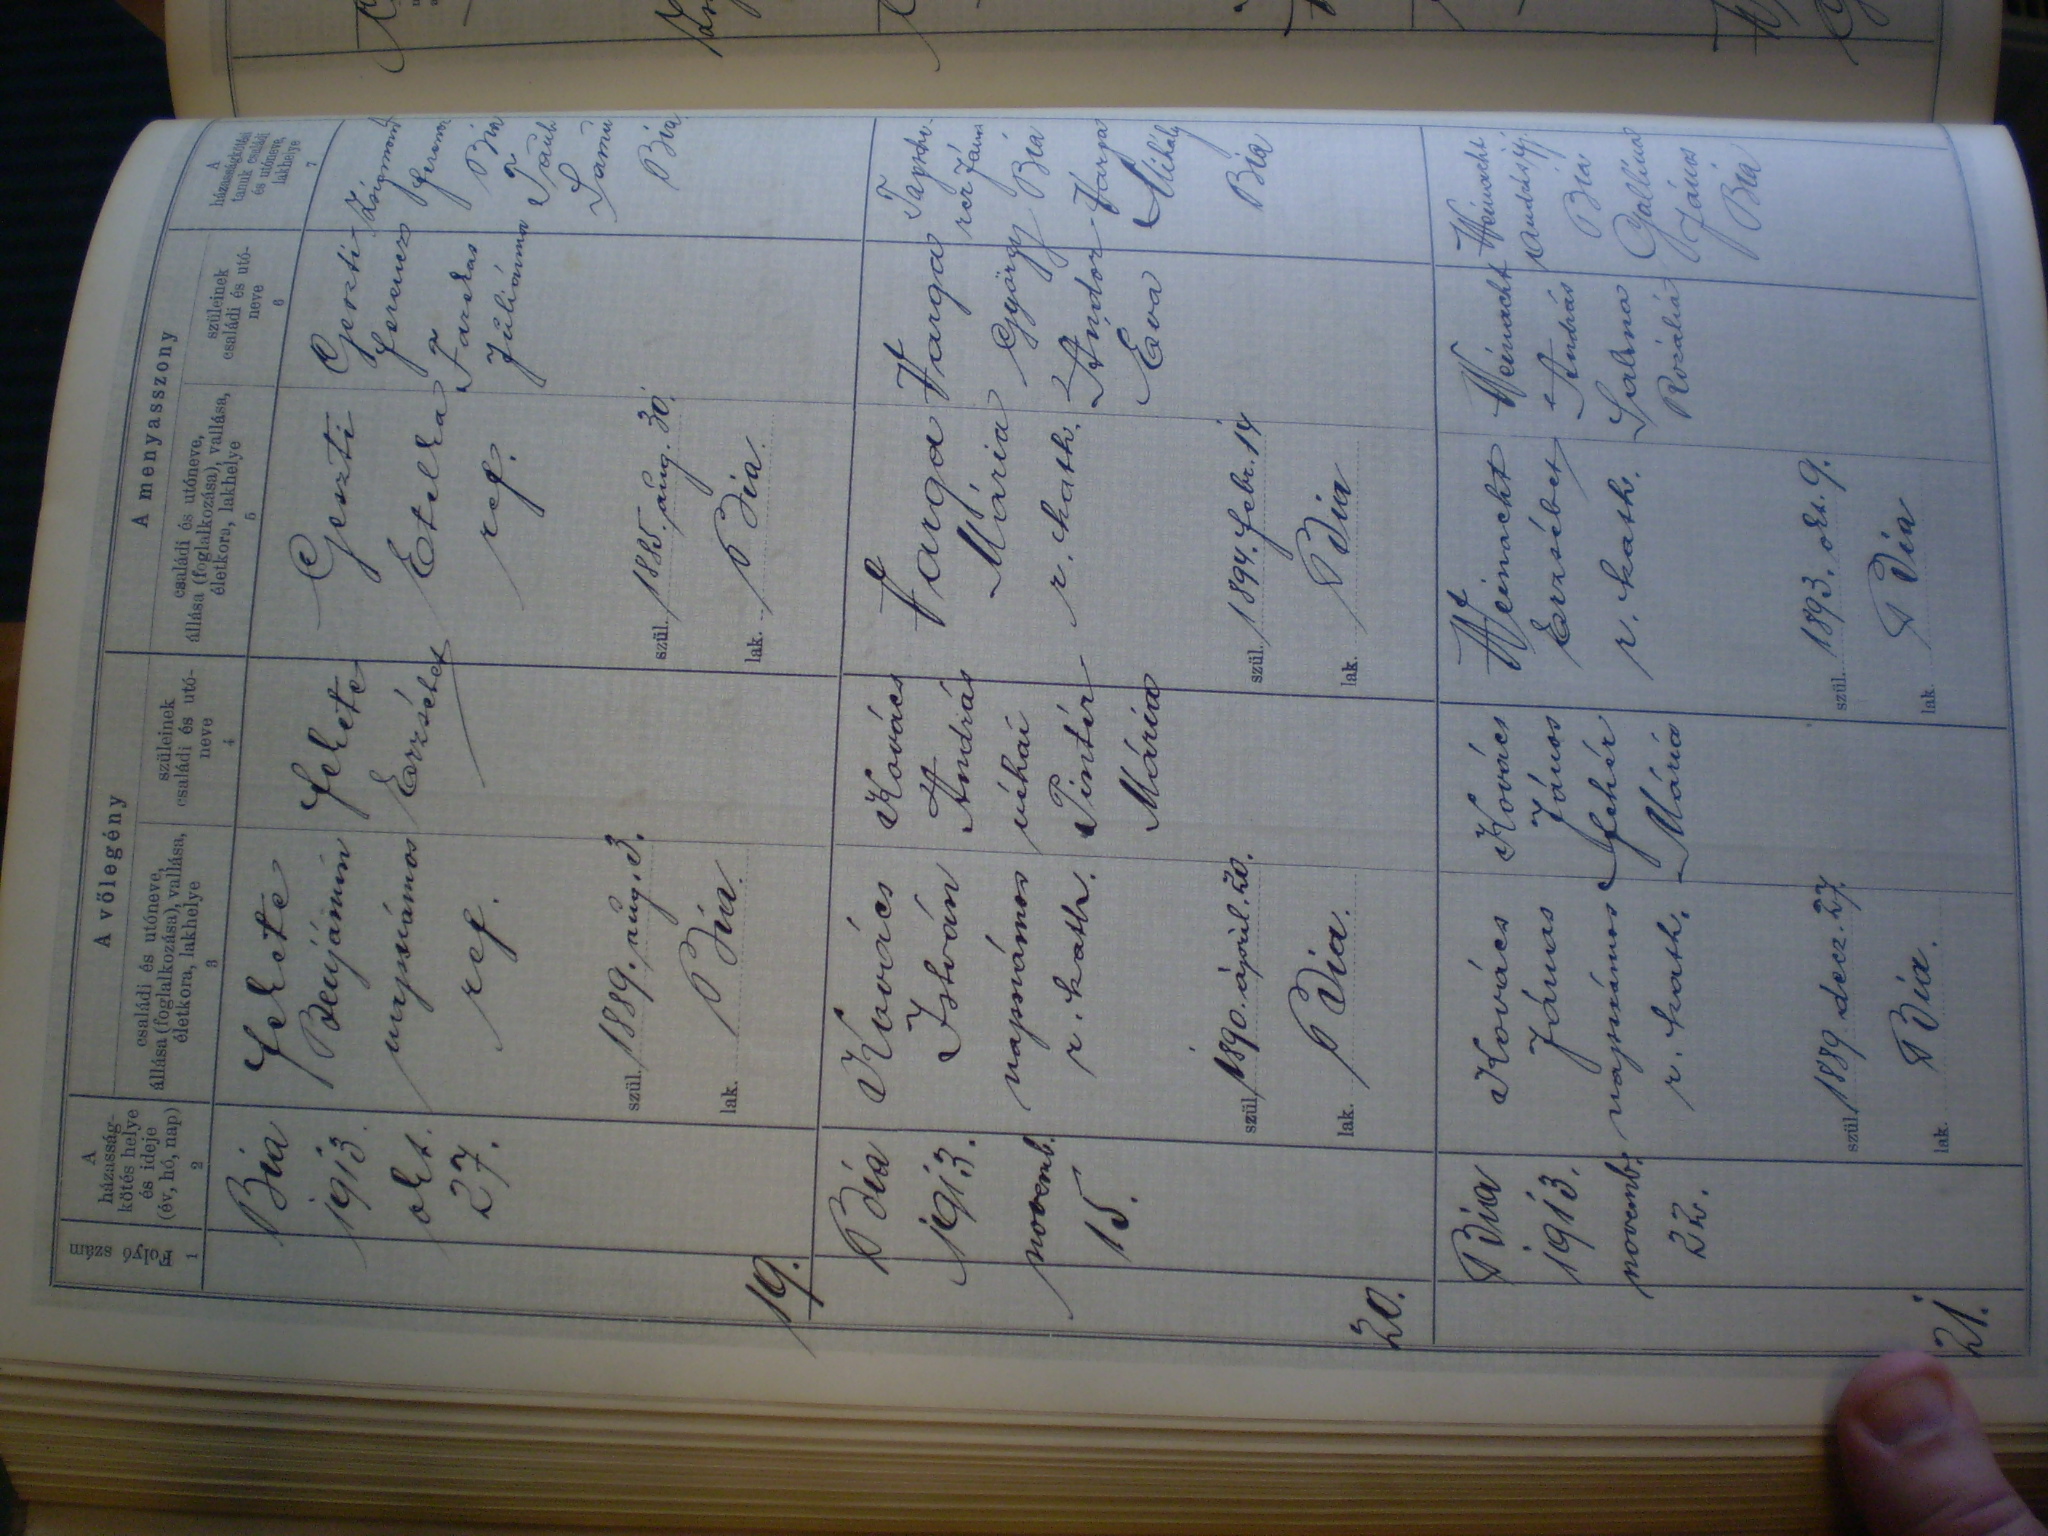 A vőlegény
A menyasszony
Folyó
szám
1
A
házasság-
kötés helye
és ideje
(év, hó, nap)
2
családi és utóneve,
állása (foglalkozása), vallása,
életkora, lakhelye
3
szüleinek
családi és utó-
neve
4
családi és utóneve,
állása (foglalkozása), vallása,
életkora, lakhelye
5
szüleinek
családi és utó-
neve
6
A
házasságkötési
tanuk családi
és utóneve,
lakhelye
7
19.
Bia
1913.
okt.
27.
Fekete
Benjámin
napszámos
ref.
szül. 1889. aug. 3.
lak. Bia.
Fekete
Erzsébet
Geszti
Etelka
ref.
szül. 1885. aug. 30.
lak. Bia.
Geszti
Ferencz
Farkas
Juliánna
Zsigmond
Ferencz
Bia
Taub
Samu
Bia
20.
Bia
1913.
novemb.
15.
Kovács
István
napszámos
r. kath.
szül. 1890. ápril. 20.
lak. Bia.
Kovács
András
néhai
Pintér
Mária
Varga
Mária
r. kath.
szül. 1894. febr. 14
lak. Bia
Varga
György
Andor
Éva
János
Bia
Varga
Mihály
Bia
21.
Bia
1913.
novemb.
22.
Kovács
János
napszámos
r. kath.
szül. 1889. decz. 27.
lak. Bia.
Kovács
János
Fehér
Mária
Weinacht
Erzsébet
r. kath.
szül. 1893. okt. 9.
lak. Bia
Weinacht
András
Rozália
Weinacht
András ifj.
Bia
János
Bia